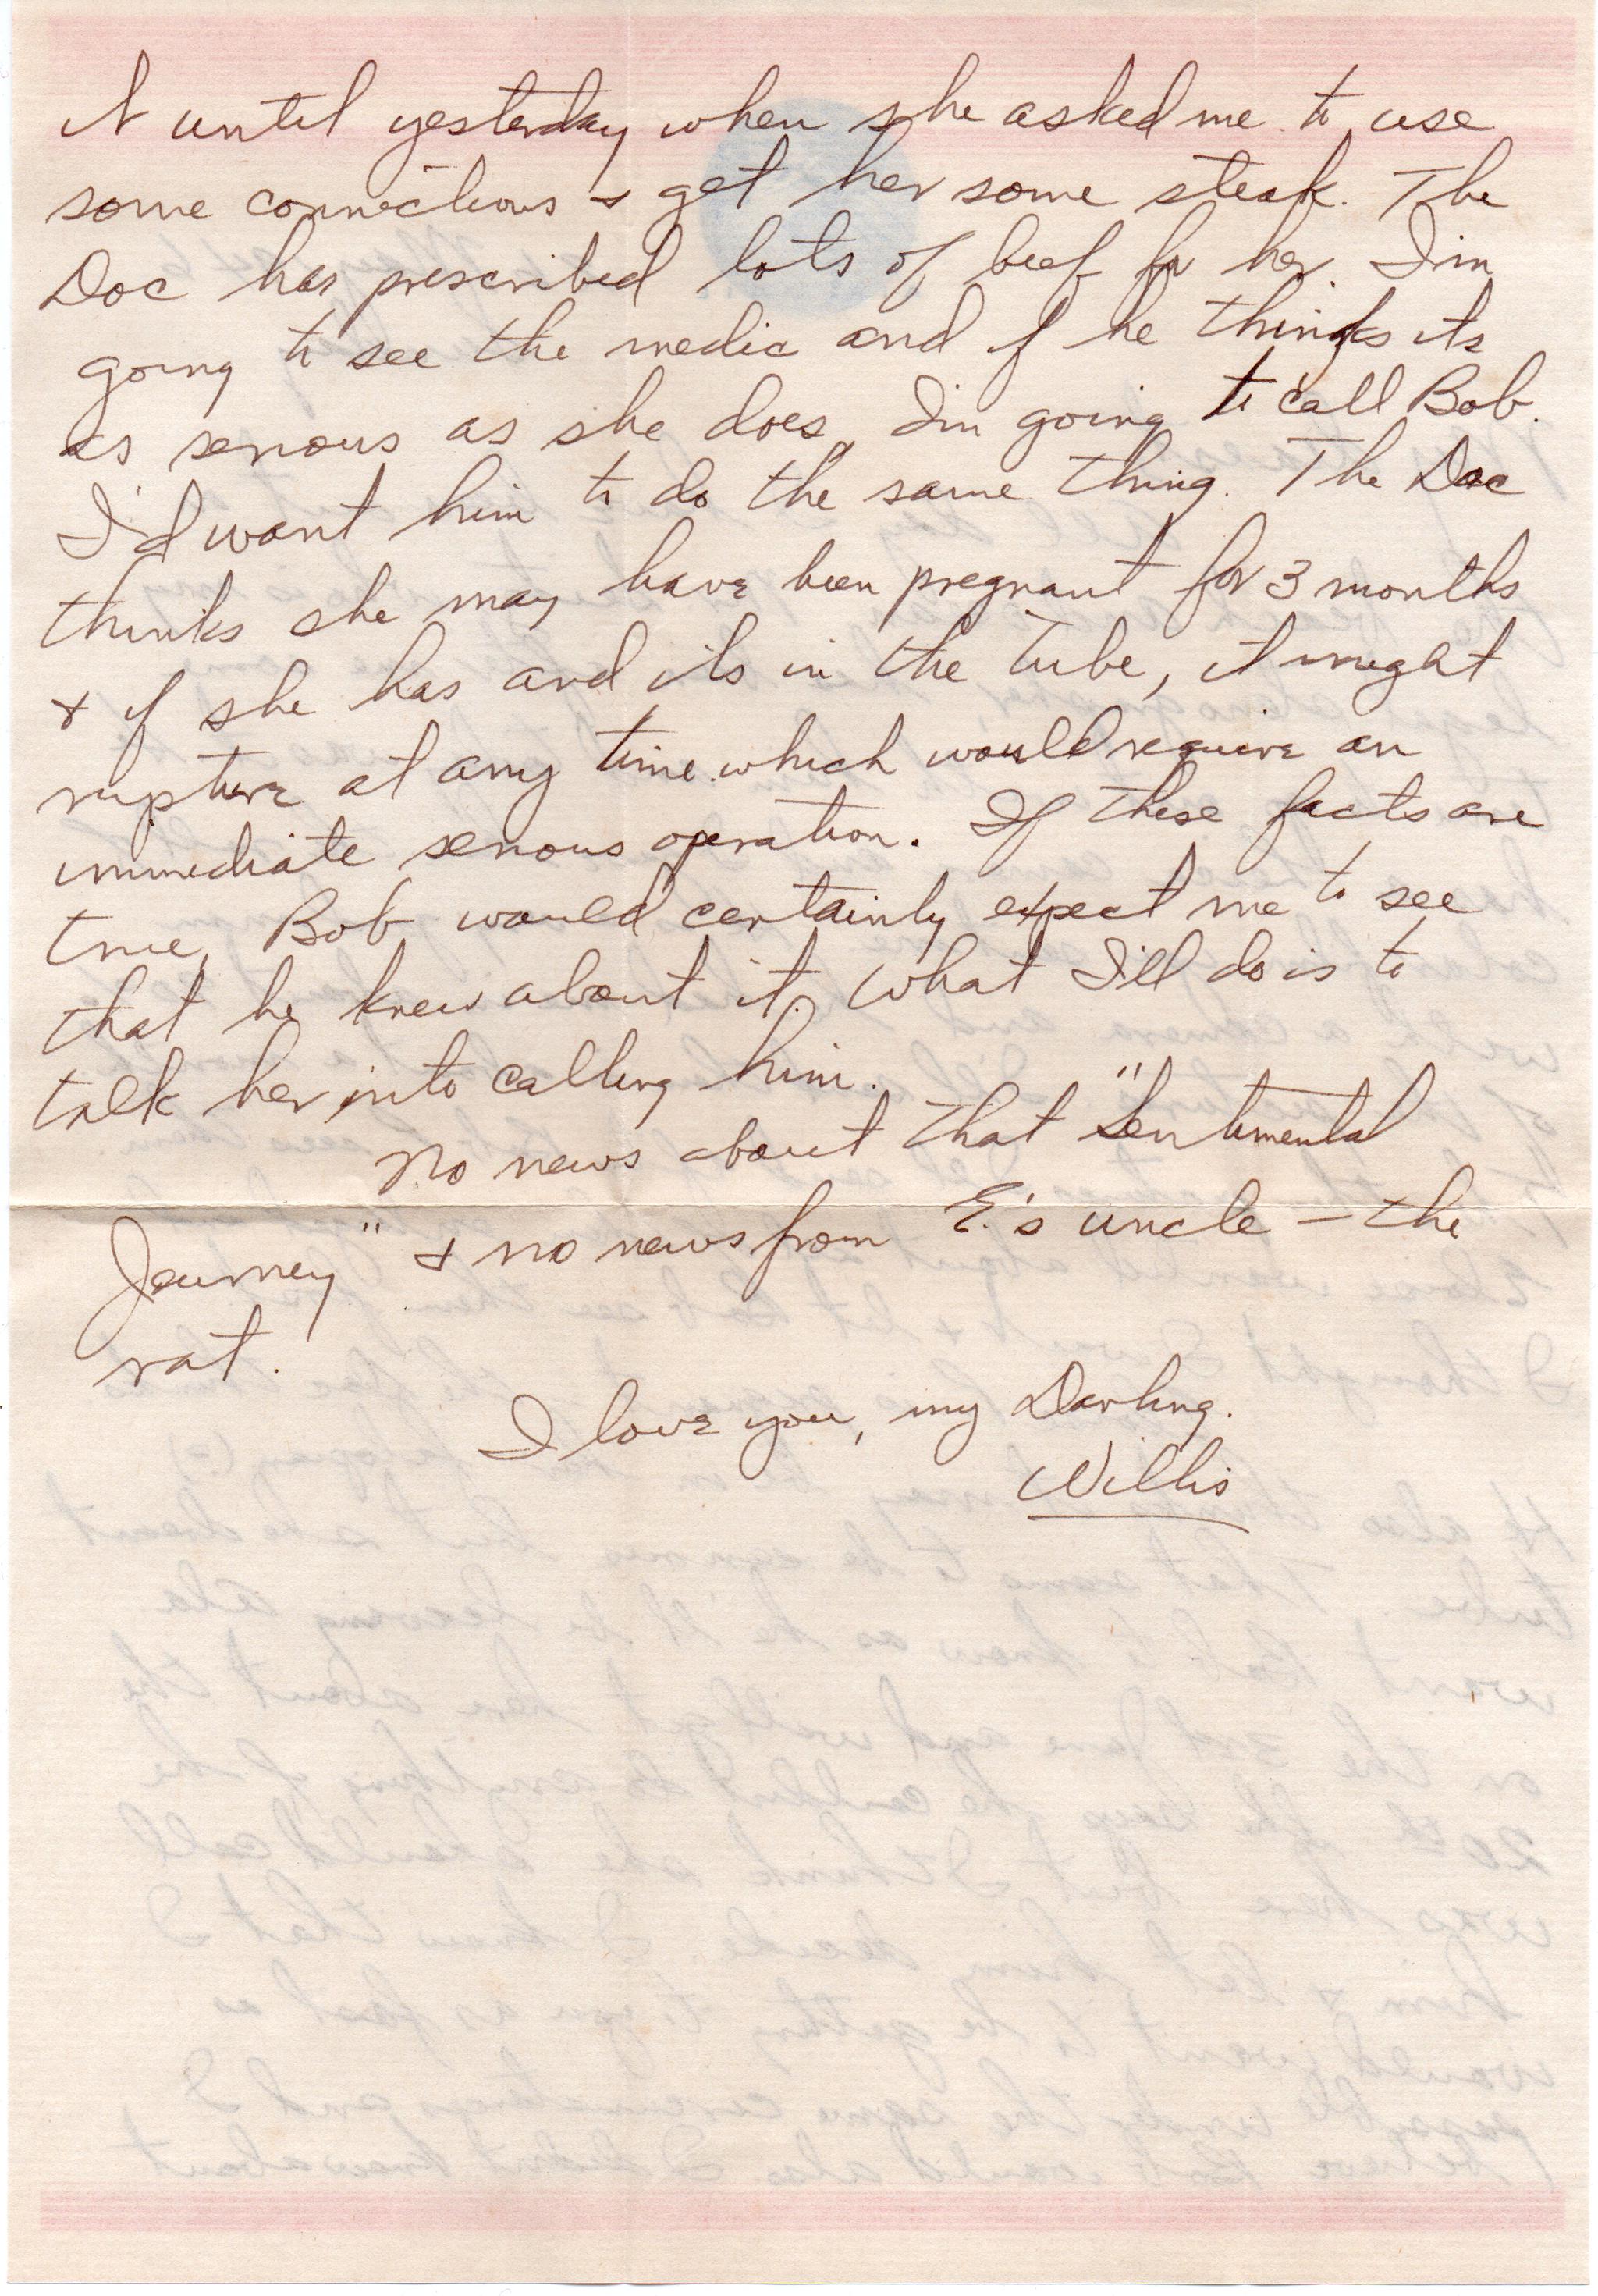 it until yesterday when she asked me to use
some connections & get her some steak. The
Doc has prescribed lots of beef for her. I'm
going to see the medic and if he thinks its
as serious as she does, I'm going to call Bob.
I'd want him to do the same thing. The Doc
thinks she may have been pregnant for 3 months
& if she has and its in the tube, it might
rupture at any time which would require an
immediate serious operation. If these facts are
true, Bob would certainly expect me to see
that he knew about it. What I'll do is to
talk her into calling him.
No news about that "Sentimental
Journey" & no news from E.'s uncle — the
rat.
I love you, my Darling.
Willis